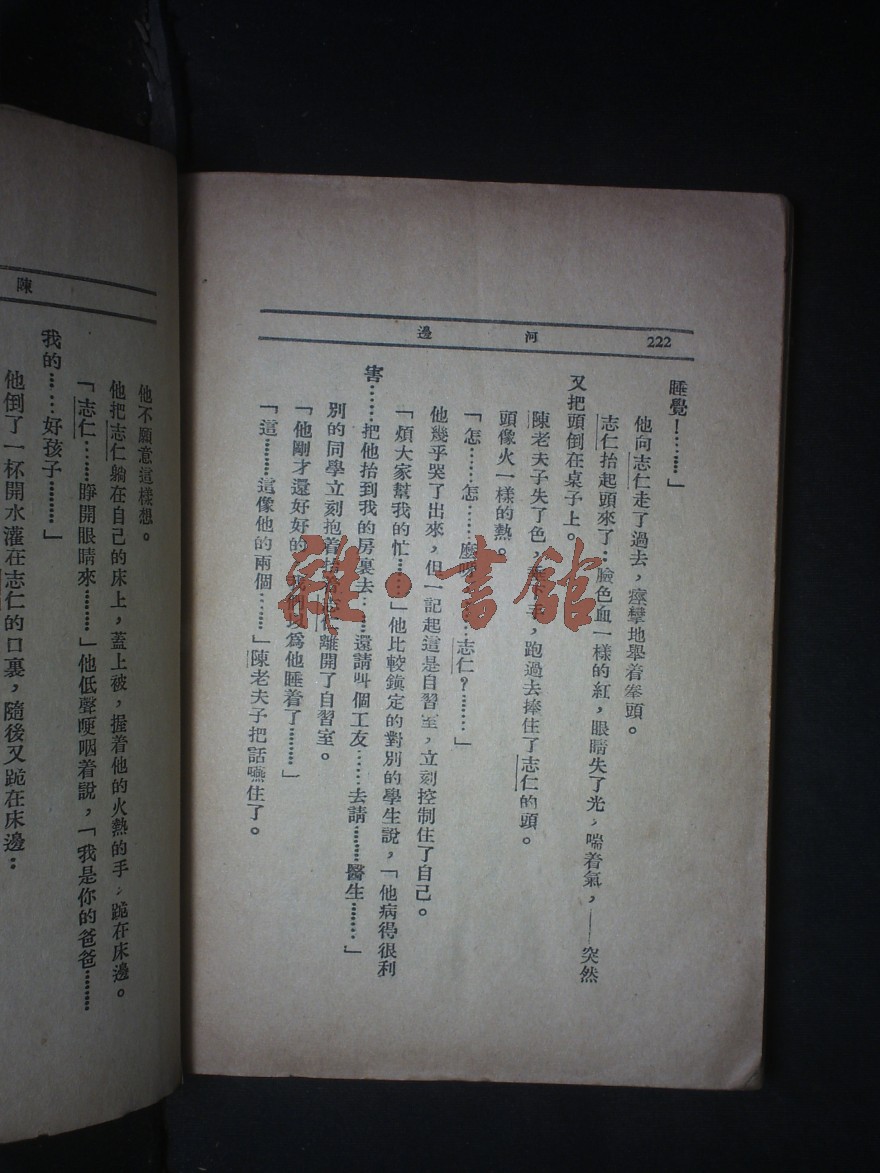 222
河邊
睡覺！……」
他向志仁走了過去，痙攣地舉着拳頭。
志仁抬起頭來了：臉色血一樣的紅，眼睛失了光，喘着氣，——突然
又把頭倒在桌子上。
陳老夫子失了色，手，跑過去捧住了志仁的頭。
頭像火一樣的熱。
「怎……怎……麼……志仁？……」
他幾乎哭了出來，但一記起這是自習室，立刻控制住了自己。
「煩大家幫我的忙……」他比較鎮定的對別的學生說，「他病得很利
害……把他抬到我的房裏去……還請叫個工友……去請……醫生……」
別的同學立刻抱着離開了自習室。
「他剛才還好好的爲他睡着了……」
「這……這像他的兩個……」陳老夫子把話嚥住了。
陳
他不願意這樣想。
他把志仁躺在自己的床上，蓋上被，握着他的火熱的手，跪在床邊。
「志仁……睜開眼睛來……」他低聲哽咽着說，「我是你的爸爸……
我的……好孩子……」
他倒了一杯開水灌在志仁的口裏，隨後又跪在床邊：
雜·書館